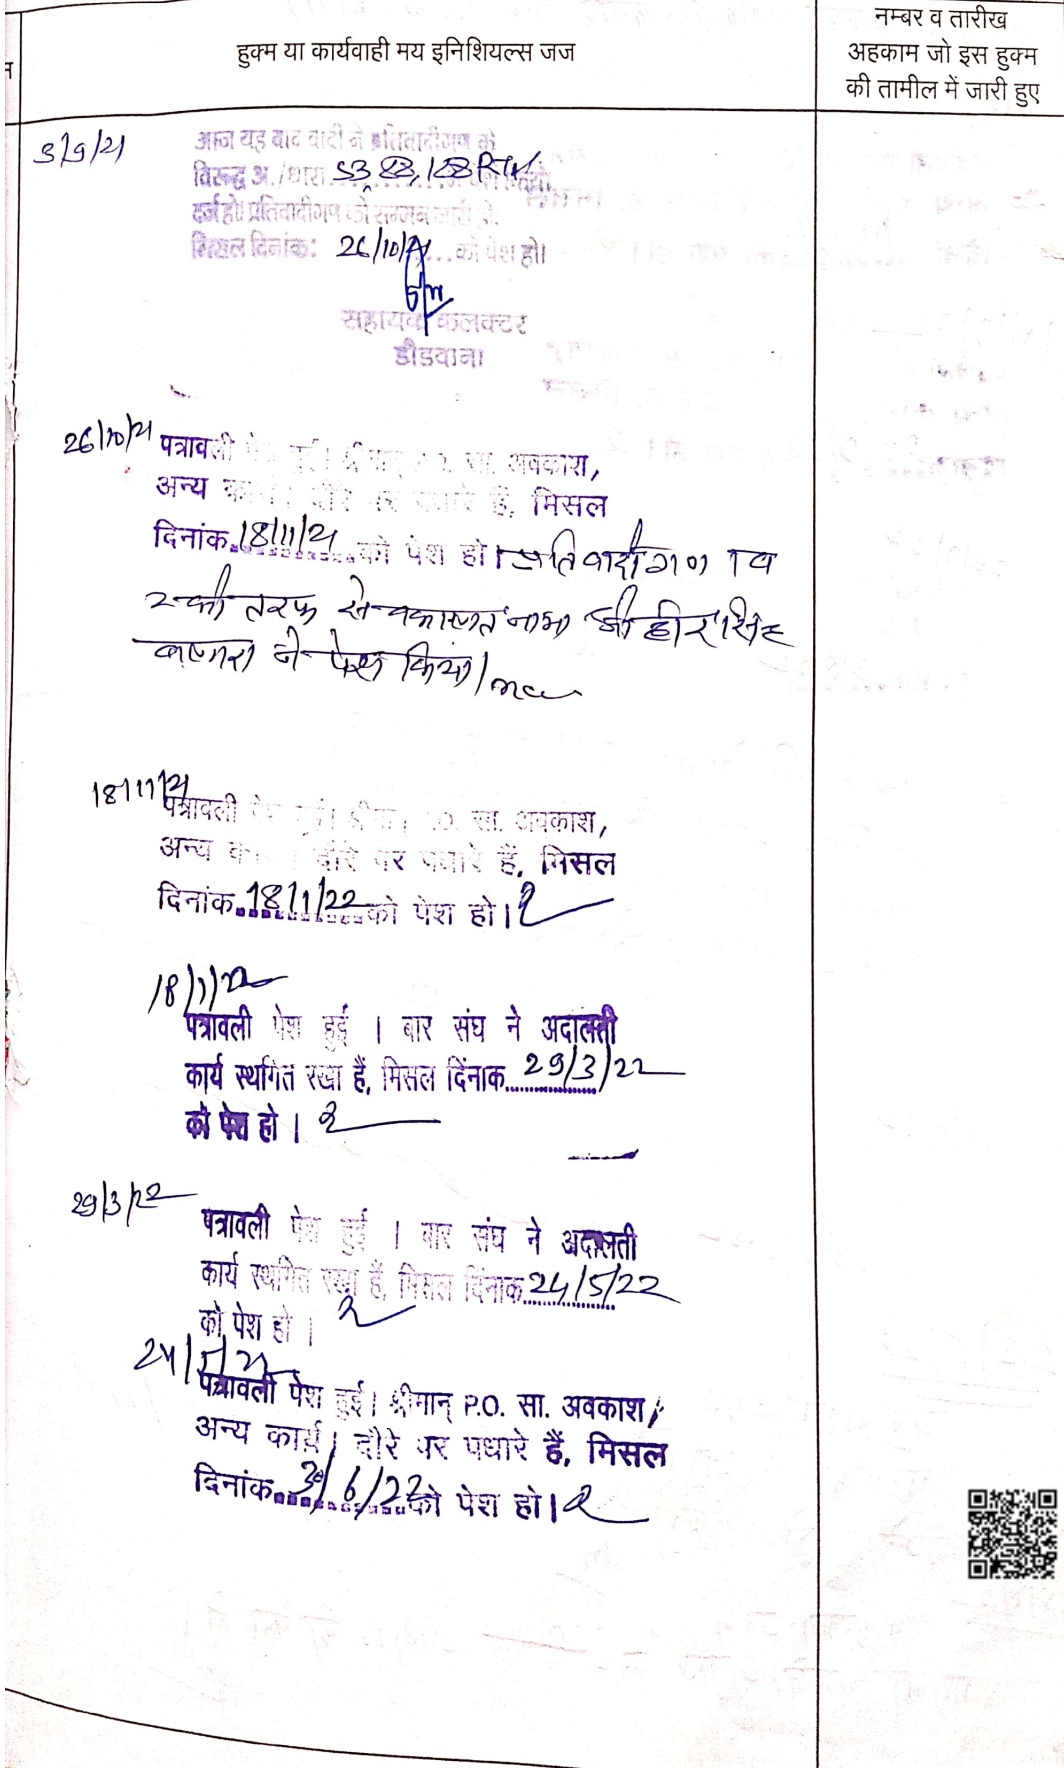 नम्बर व तारीख
हुक्म या कार्यवाही मय इनिशियल्स जज
अहकाम जो इस हुक्म
की तामील में जारी हुए
3/9/21
आज यह वाद वादी ने प्रतिवादीगण के
विरूद्ध अ./धारा 53, 88, 188 RTA
दर्ज हो। प्रतिवादीगण को सम्मन जारी हो.
मिसल दिनांक: 26/10/21 को पेश हो।
सहायक कलक्टर
डीडवाना
26/10/21 पत्रावली पेश हुई। श्रीमान् P.O. सा. अवकाश,
अन्य कार्य। दौरे पर पधारे हैं, मिसल
दिनांक 18/11/21 को पेश हो। प्रतिवादीगण 1 व
2 की तरफ से वकालतनामा श्री हीरसिंह
ने पेश किया।
18/11/21
पत्रावली पेश हुई। श्रीमान् P.O. सा. अवकाश,
अन्य कार्य। दौरे पर पधारे हैं, मिसल
दिनांक 18/1/22 को पेश हो।
18/1/22
पत्रावली पेश हुई । बार संघ ने अदालती
कार्य स्थगित रखा हैं, मिसल दिंनाक 29/3/22
को पेश हो ।
29/3/22
पत्रावली पेश हुई । बार संघ ने अदालती
कार्य स्थगित रखा हैं, मिसल दिंनाक 24/5/22
को पेश हो ।
24/5/22
पत्रावली पेश हुई। श्रीमान् P.O. सा. अवकाश,
अन्य कार्य। दौरे पर पधारे हैं, मिसल
दिनांक 30/6/22 को पेश हो।